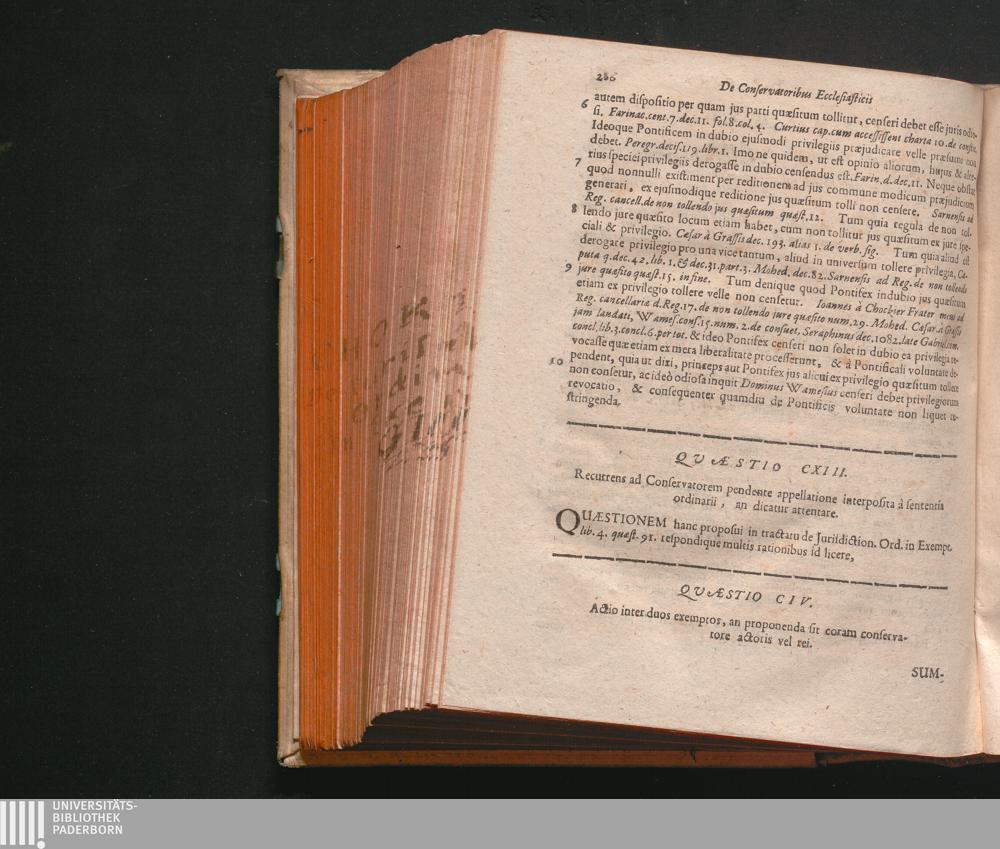 266
De Conservatoribus Ecclesiasticis
autem dispositio per quam jus parti quæsitum tollitur, censeri debet esse juris odio-
6 si. Farinac. cent. 7. dec. 11. fol. 8. col. 4. Curtius cap. cum accessissent charta 10. de constit.
Ideoque Pontificem in dubio ejusmodi privilegiis præjudicare velle præsumi non
debet. Peregr. decis. 119. libr. 1. Imo ne quidem, ut est opinio aliorum, hujus & alte-
rius speciei privilegiis derogasse in dubio censendus est. Farin. d. dec. 11. Neque obstat
7 quod nonnulli existiment per reditionem ad jus commune modicum præjudicium
generari, ex ejusmodique reditione jus quæsitum tolli non censere. Sarnensis ad
Reg. cancell. de non tollendo jus quæsitum quæst. 12. Tum quia regula de non tol-
8 lendo jure quæsito locum etiam habet, cum non tollitur jus quæsitum ex jure spe-
ciali & privilegio. Cæsar à Grassis dec. 193. alias 1. de verb. sig. Tum quia aliud est
derogare privilegio pro una vice tantum, aliud in universum tollere privilegia, Ca-
puta q. dec. 42. lib. 1. & dec. 31. part. 3. Mohed. dec. 82. Sarnensis ad Reg. de non tollendo
9 jure quæsito quæst. 15. in fine. Tum denique quod Pontifex in dubio jus quæsitum
etiam ex privilegio tollere velle non censetur. Ioannes à Chockier Frater meus ad
Reg. cancellariæ d. Reg. 17. de non tollendo jure quæsito num. 29. Mohed. Cæsar à Grassis
jam laudati, Wames. cons. 15. num. 2. de consuet. Seraphinus dec. 1082. late Gabriel com.
concl. lib. 3. concl. 6. per tot. & ideo Pontifex censeri non solet in dubio ea privilegia re-
vocasse quæ etiam ex mera liberalitate processerunt, & à Pontificali voluntate de-
10 pendent, quia ut dixi, princeps aut Pontifex jus alicui ex privilegio quæsitum tollere
non censetur, ac ideò odiosa inquit Dominus Wamesius censeri debet privilegiorum
revocatio, & consequenter quamdiu de Pontificis voluntate non liquet re-
stringenda.
QVÆSTIO CXIII.
Recurrens ad Conservatorem pendente appellatione interposita à sententia
ordinarii, an dicatur attentare.
QUÆSTIONEM hanc proposui in tractatu de Jurisdiction. Ord. in Exempt.
lib. 4. quæst. 91. respondique multis rationibus id licere,
QVÆSTIO CIV.
Actio inter duos exemptos, an proponenda sit coram conserva-
tore actoris vel rei.
SUM-
UNIVERSITÄTS-
BIBLIOTHEK
PADERBORN